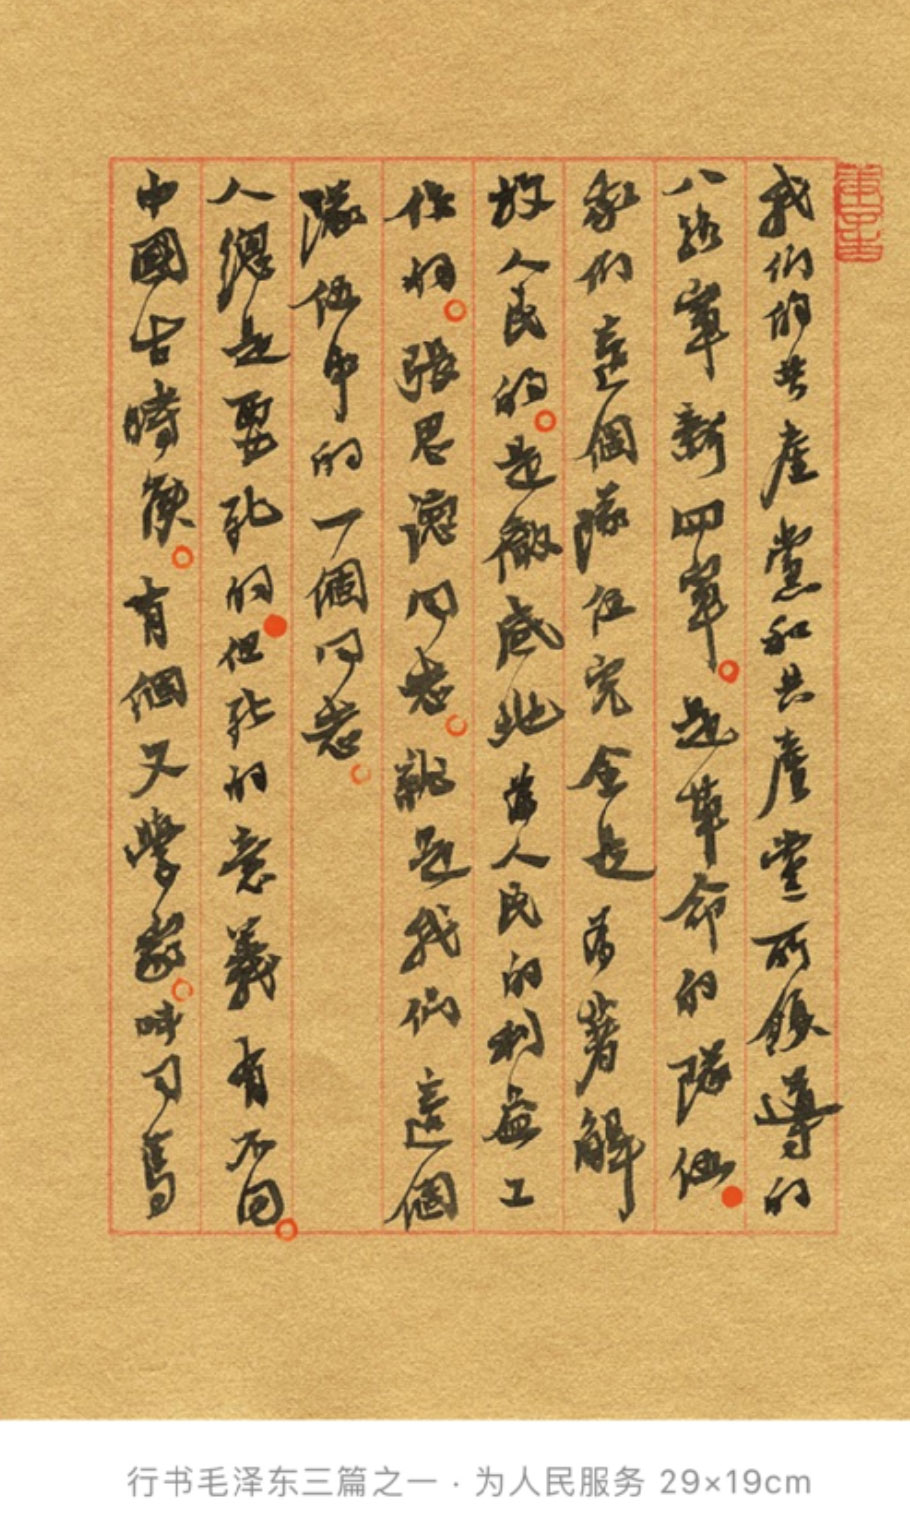 我们的共產黨和共產黨所領導的
八路軍新四軍。是革命的隊伍
我們這個隊伍完全是為著解
放人民的。是徹底地為人民的利益工
作的。張思德同志。就是我們這個
隊伍中的一個同志。
人總是要死的但死的意義有不同。
中國古時候。有個文學家。叫司馬
行书毛泽东三篇之一 · 为人民服务 29×19cm